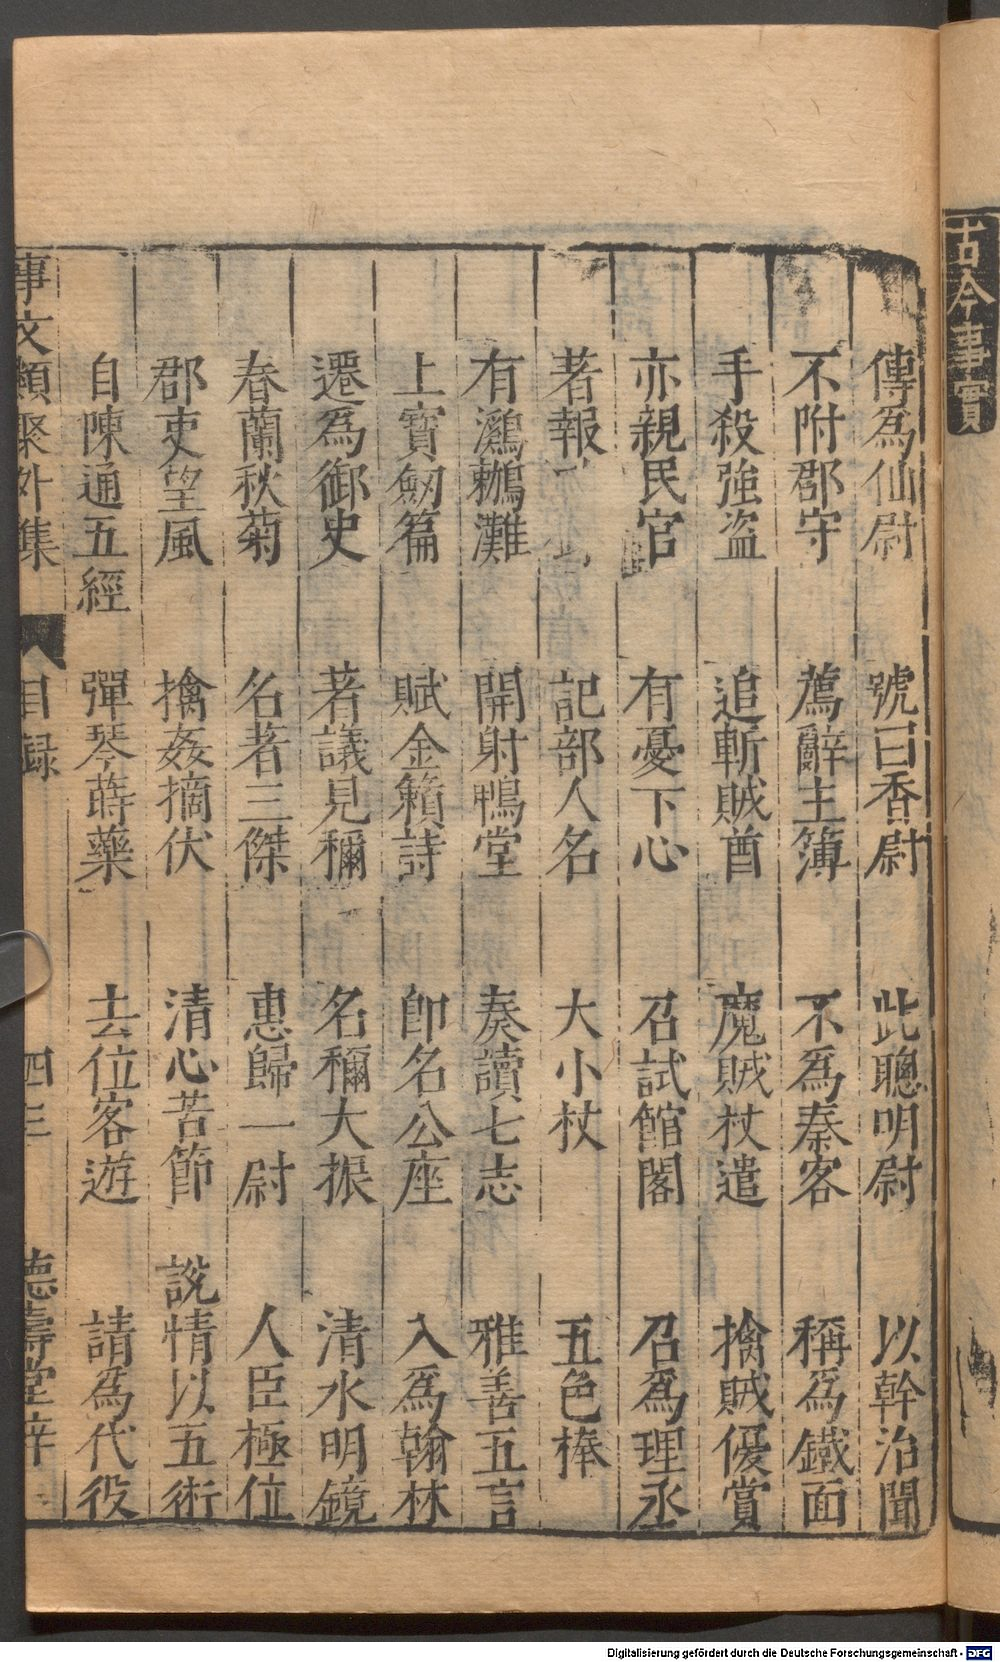 古今事實
傳爲仙尉　號曰香尉　此聰明尉　以幹治聞
不附郡守　薦辭主簿　不爲秦客　稱爲鐵面
手殺強盜　追斬賊酋　魔賊杖遣　擒賊優賞
亦親民官　有憂下心　召試館閣　召爲理丞
著報　記部人名　大小杖　五色棒
有鸂鶒灘　開射鴨堂　奏讀七志　雅善五言
上寶劒篇　賦金籟詩　卽名公座　入爲翰林
遷爲御史　著議見稱　名稱大振　清水明鏡
春蘭秋菊　名著三傑　惠歸一尉　人臣極位
郡吏望風　擒姦摘伏　清心苦節　說情以五術
自陳通五經　彈琴蒔藥　去位客遊　請爲代役
事文類聚外集　目録　四三　德壽堂梓
Digitalisierung gefördert durch die Deutsche Forschungsgemeinschaft - DFG